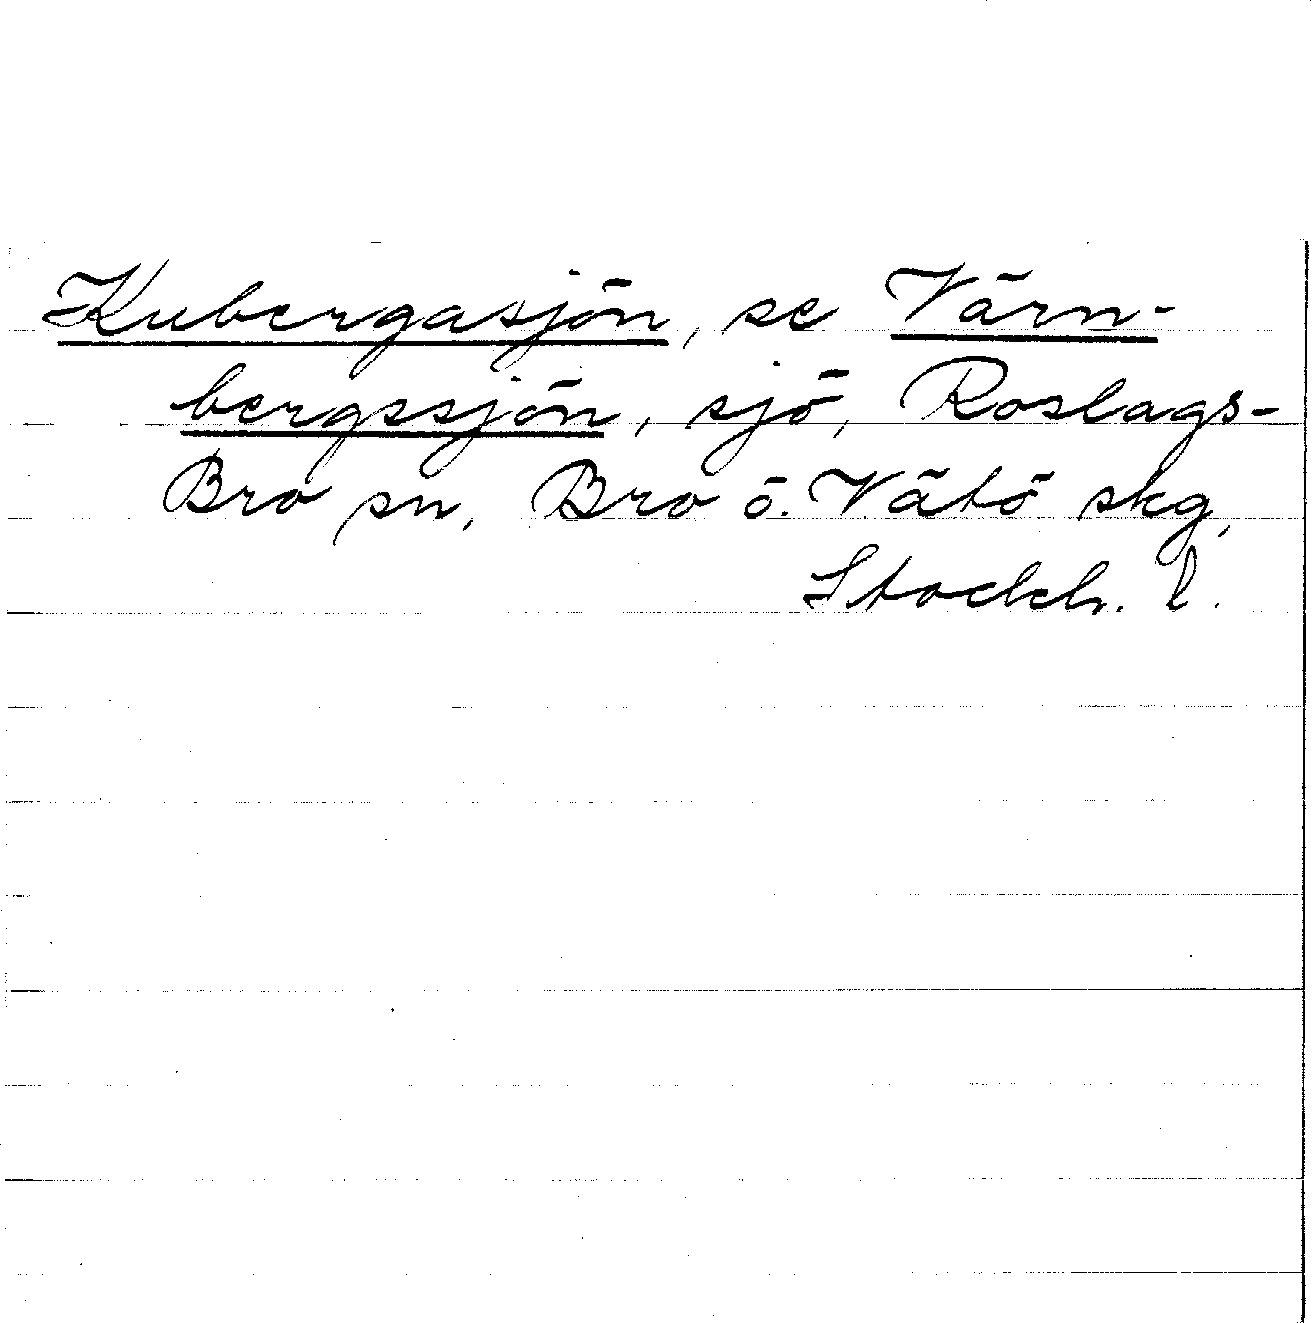 Kubergasjön, se Värn-
bergssjön, sjö, Roslags-
Bro sn, Bro o. Vätö skg,
Stockh. l.